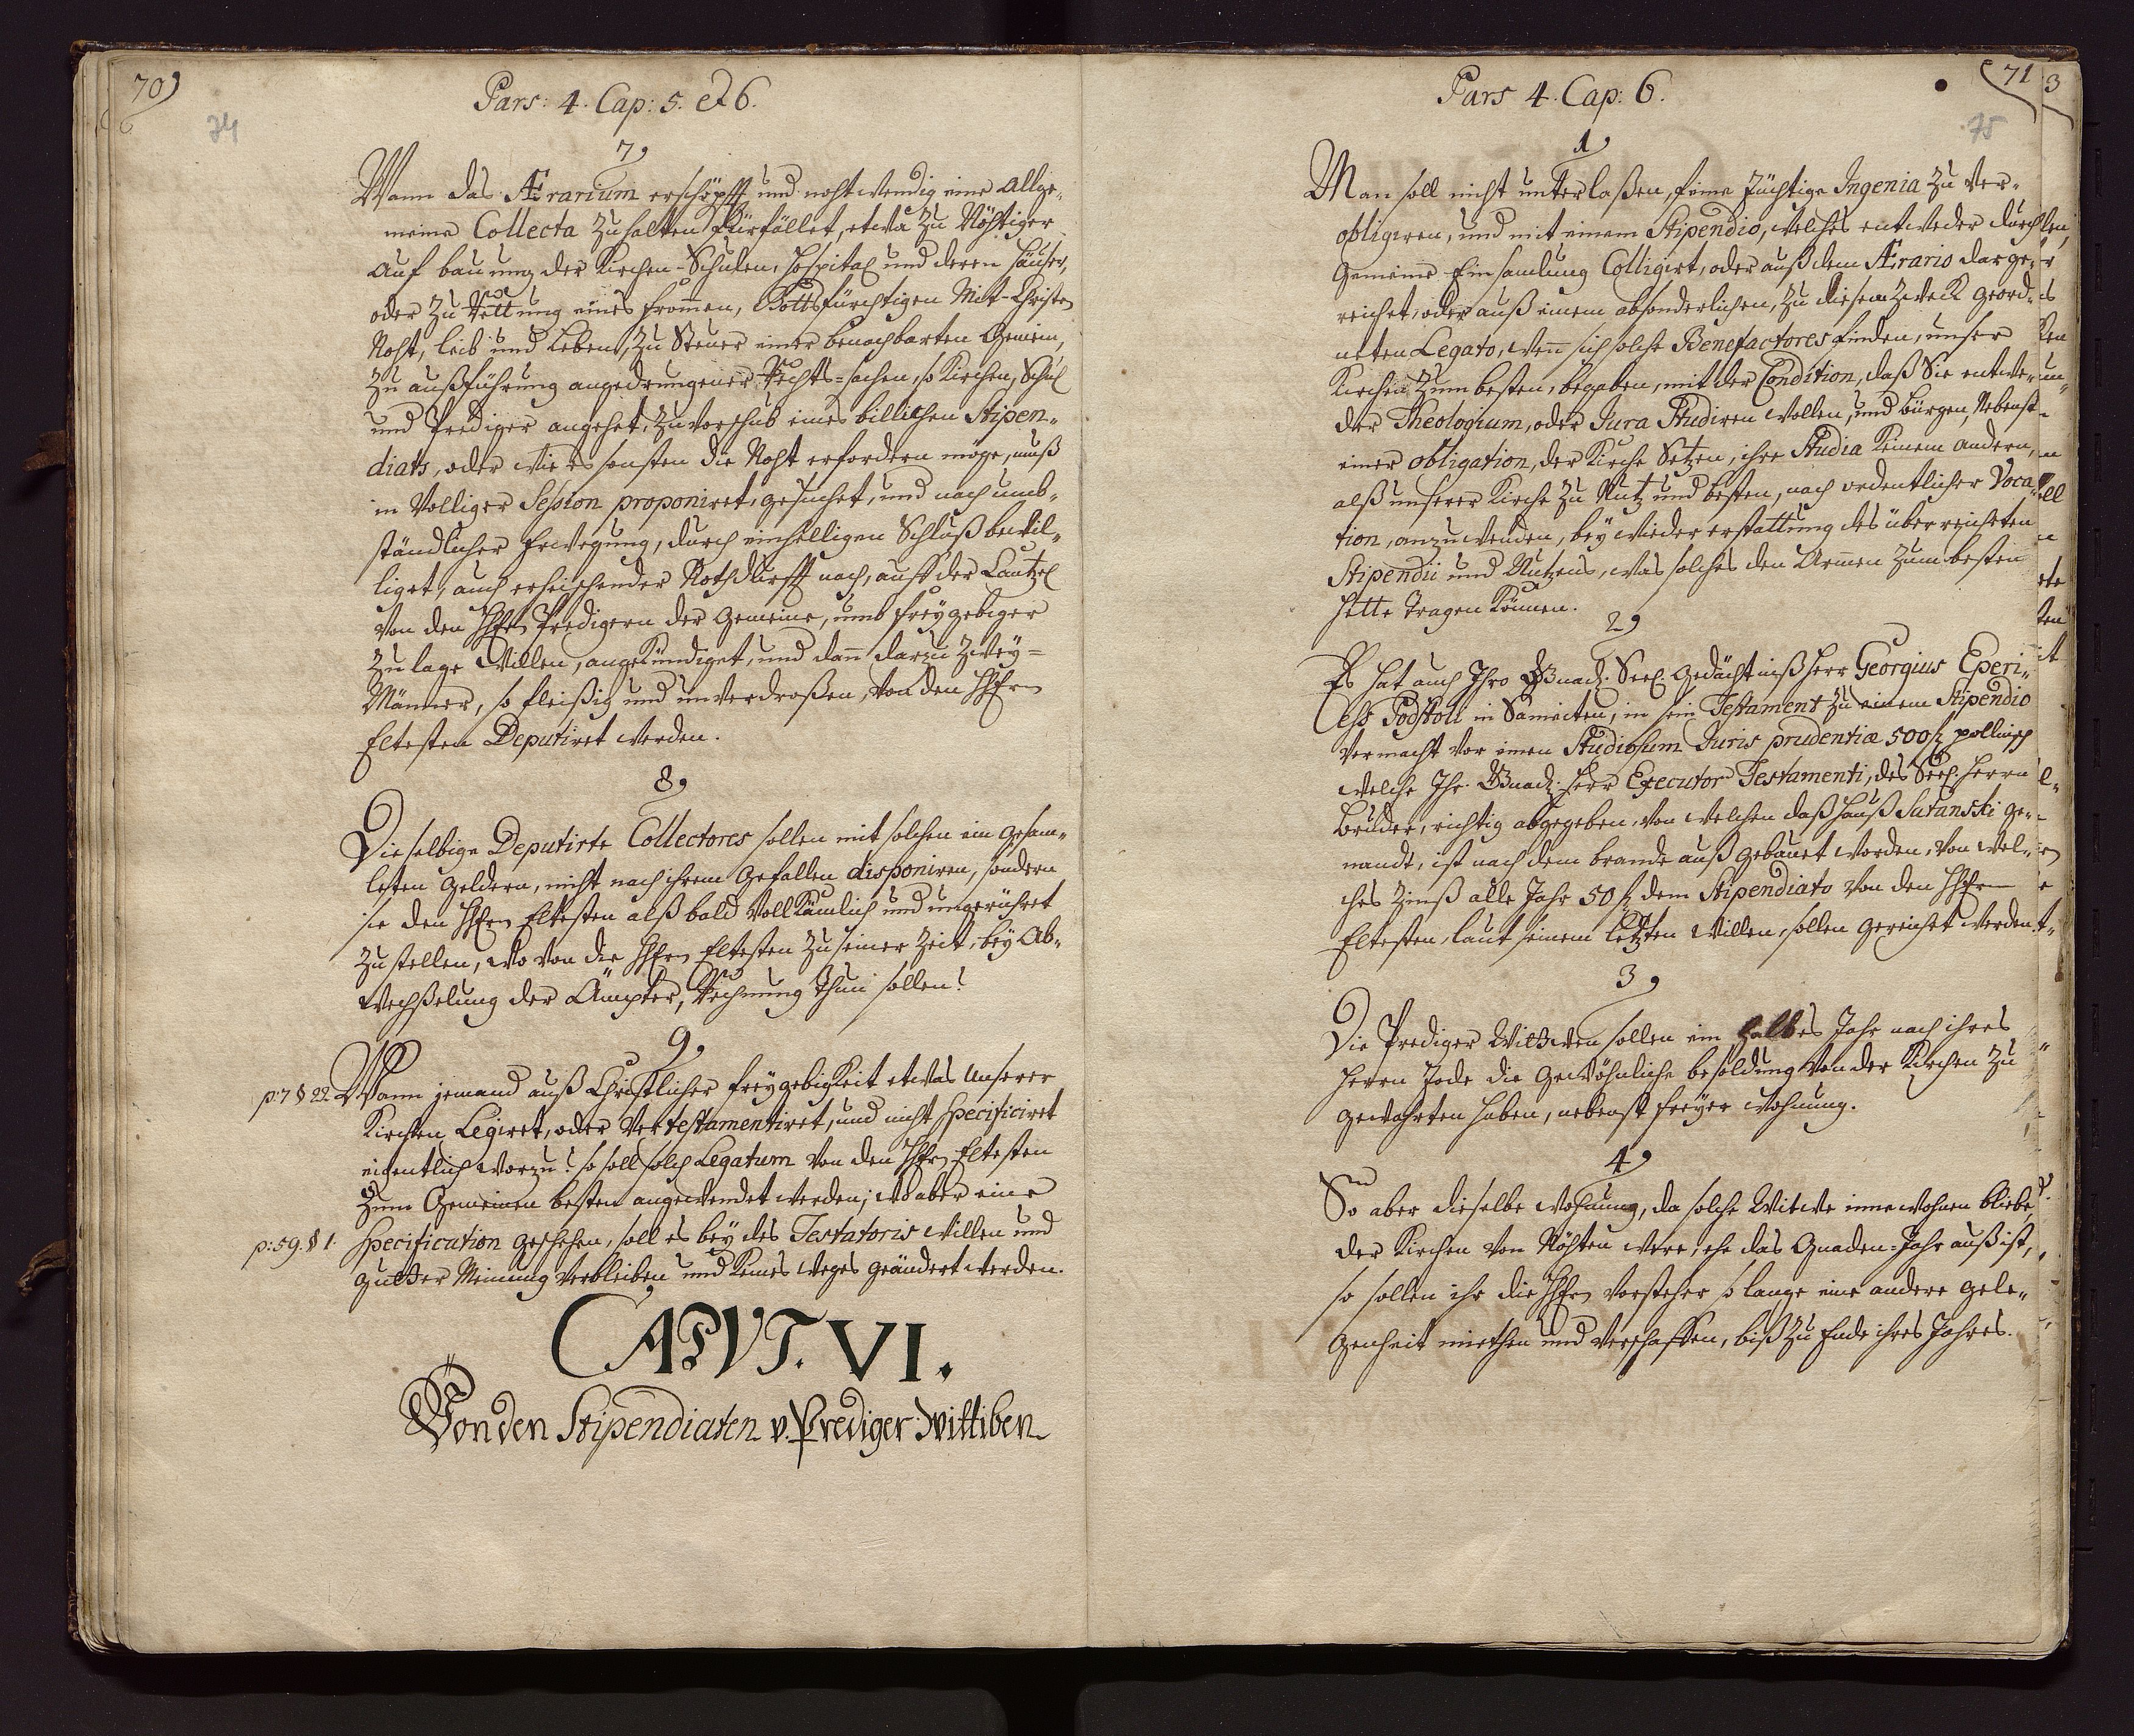 70)
74
Pars: 4. Cap: 5. et 6.
7,
Wann das Ærarium erschöpfft und nohtwendig eine Allge„
meine Collecta zuhalten fürfället, etwa zu Nöhtiger
Auf bauung der Kirchen-Schulen, Hospital und deren Häuser,
oder zu Rettung eines frommen, Gottsfürchtigen Mit-Christen
Noht, leib und Leben, zu Steuer einer benachbarten Gemein,
zu außführung angedrungener Rechts-sachen, so Kirchen, Schul
und Prediger angehet, zu vorschub eines billichen Stipen„
diats, oder wie es sonsten die Noht erfordern möge, muß
in Volliger Session proponiret, gesuchet, und nach umb„
ständlicher Erwegung, durch einhelligen Schluß bewil„
liget, auch erheischender Nothdurfft nach, auff der Cantzel
von den HhEr Predigern der Gemeine, umb freygebiger
Zulage willen, angekündiget, und dann darzu zwey=
Männer, so fleißig und unverdroßen, von den HhErn
Eltesten Deputiret werden.
8,
Dieselbige Deputirte Collectores sollen mit solchen ein gesam„
leten Geldern, nicht nach ihrem Gefallen disponiren, sondern
sie den HhErn Eltesten alß bald vollkömlich und ungerühret
zustellen, wo von die HhErn Eltesten zu seiner Zeit, bey Ab„
wechßelung der Ämpter, Rechnung thun sollen.
9,
p: 7 § 22. Wann jemand auß Christlicher freygebigkeit etwas Unserer
Kirchen Legiret, oder Vertestamentiret, und nicht specificiret
eigentlich worzu: so soll solch Legatum von den HhErn Eltesten
zum Gemeinen besten angewendet werden; wo aber eine
p: 59. § 1. Specification geschehen, soll es bey des Testatoris willen und
guther Meinung verbleiben und keines weges geändert werden.
CAPVT. VI.
Von den Stipendiaten v. Prediger wittiben
71
3
75
Pars 4. Cap: 6.
1,
Man soll nicht unterlaßen, feine züchtige Ingenia zu ver„
obligiren, und mit einem Stipendio, welches entweder durch
Gemeine Einsamlung Colligirt, oder auß dem Ærario darge„
reichet, oder auß einem absonderlichen, zu diesem zweck geord„
neten Legato, wen sich solche Benefactores finden, unser
Kirchen zum besten, begaben, mit der Condition, daß Sie entwe„
der Theologium, oder Jura Studiren wollen, und bürgen, Nebenst
einer obligation, der Kirche Setzen, ihre Studia keinem andern,
alß unserer Kirche zu Nutz und besten, nach ordentlicher Voca„
tion, anzuwenden, bey wieder erstattung des überreicheten
Stipendii und Nutzens, was solches den Armen zum besten
hette tragen können.
2,
Es hat auch Ihro Gnad. Seel. Gedächtniß Herr Georgius Eperi„
ess Podstoli in Samoiten, in sein Testament zu einem Stipendio
vermacht vor einen Studiosum Juris prudentiæ 500 fl pollnisch
welche Ihr. Gnad. Herr Executor Testamenti, des Seel. Herrn
Bruder, richtig abgegeben, von welchen daß Hauß Sutanski ge„
nandt, ist nach dem brande auß gebauet worden, von wel„
ches Zinß alle Jahr 50 fl dem Stipendiato von den HhErn
Eltesten, laut seinem letzten Willen, sollen gereichet werden.
3,
Die Prediger Witwen sollen ein halbes Jahr nach ihres
Herrn Tode die gewöhnliche besoldung von der Kirchen zu
gewahrten haben, nebenst freyer wohnung.
4,
So aber dieselbe wohnung, da solche Witwe inne wohnen bliebe,
der Kirchen von Nöhten were, ehe das Gnaden-Jahr auß ist,
so sollen ihr die HhErn Vorsteher so lange eine andere gele„
genheit miethen und verschaffen, biß zu Ende ihres Jahres.